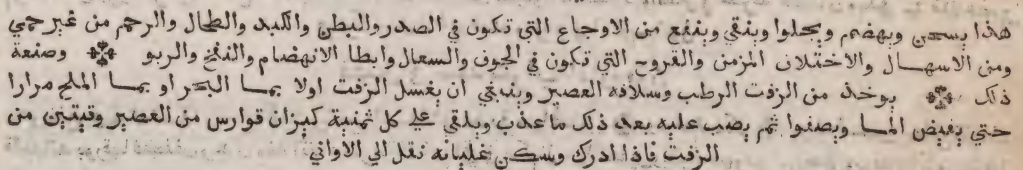 هذا يسخن ويهضم ويجلوا وينقي وينفع من الاوجاع التي تكون في الصدر والبطن والكبد والطحال والرحم من غير حمي
ومن الاسهال والاختلاف المزمن والقروح التي تكون في الجوف والسعال وابطا الانهضام والنفخ والربو وصنعة
ذلك يوخذ من الزفت الرطب وسلافه العصير وينبغي ان يغسل الزفت اولا بما البحر او بما الملح مرارا
حتي يفيض الما ويصفوا ثم يصب عليه بعد ذلك ما عذب ويلقي علي كل ثمنية كيزان قوارس من العصير وقيتين من
الزفت فاذا ادرك وسكن غليانه نقل الي الاواني